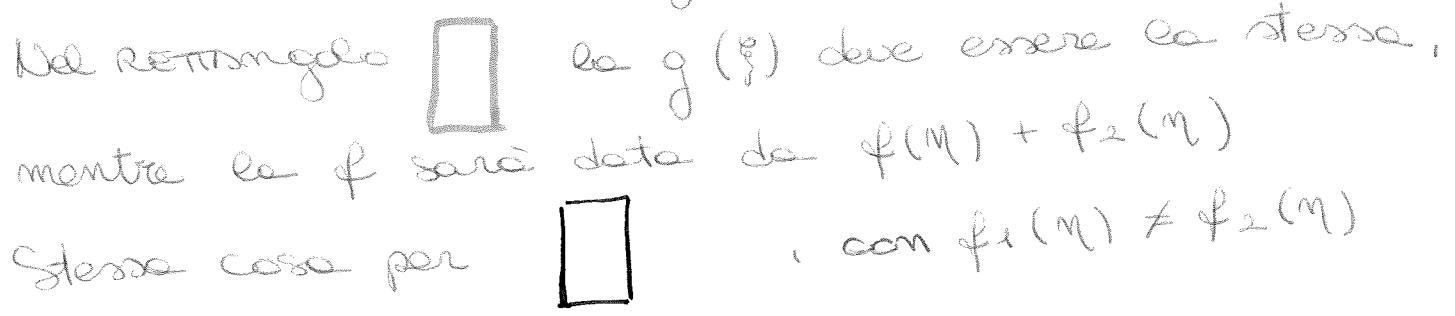 Nel RETTAngolo la g(ξ) deve essere la stessa,
mentre la f sarà data da f(η) + f2(η)
Stessa cosa per , con f1(η) ≠ f2(η)